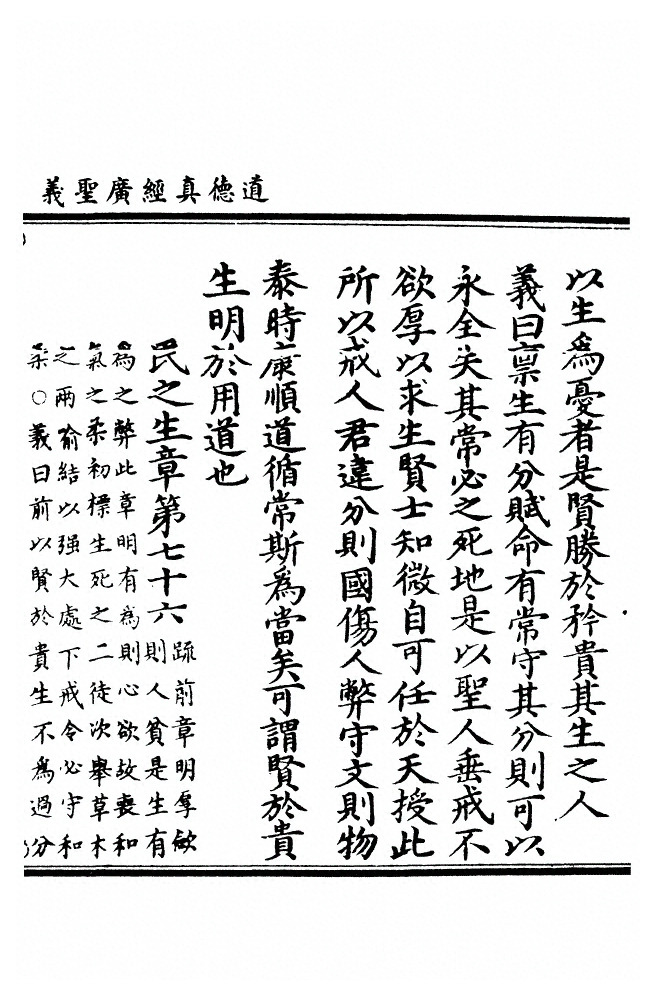 道德真經廣聖義
以生爲憂者是賢勝於矜貴其生之人
義曰禀生有分賦命有常守其分則可以
永全失其常必之死地是以聖人垂戒不
欲厚以求生賢士知微自可任於天授此
所以戒人君違分則國傷人弊守文則物
泰時康順道循常斯爲當矣可謂賢於貴
生明於用道也
民之生章第七十六
疏前章明厚斂
則人貧是生有
爲之弊此章明有爲則心欲故喪和
氣之柔初標生死之二徒次舉草木
之兩喻結以强大處下戒令必守和
柔○義曰前以賢於貴生不爲過分